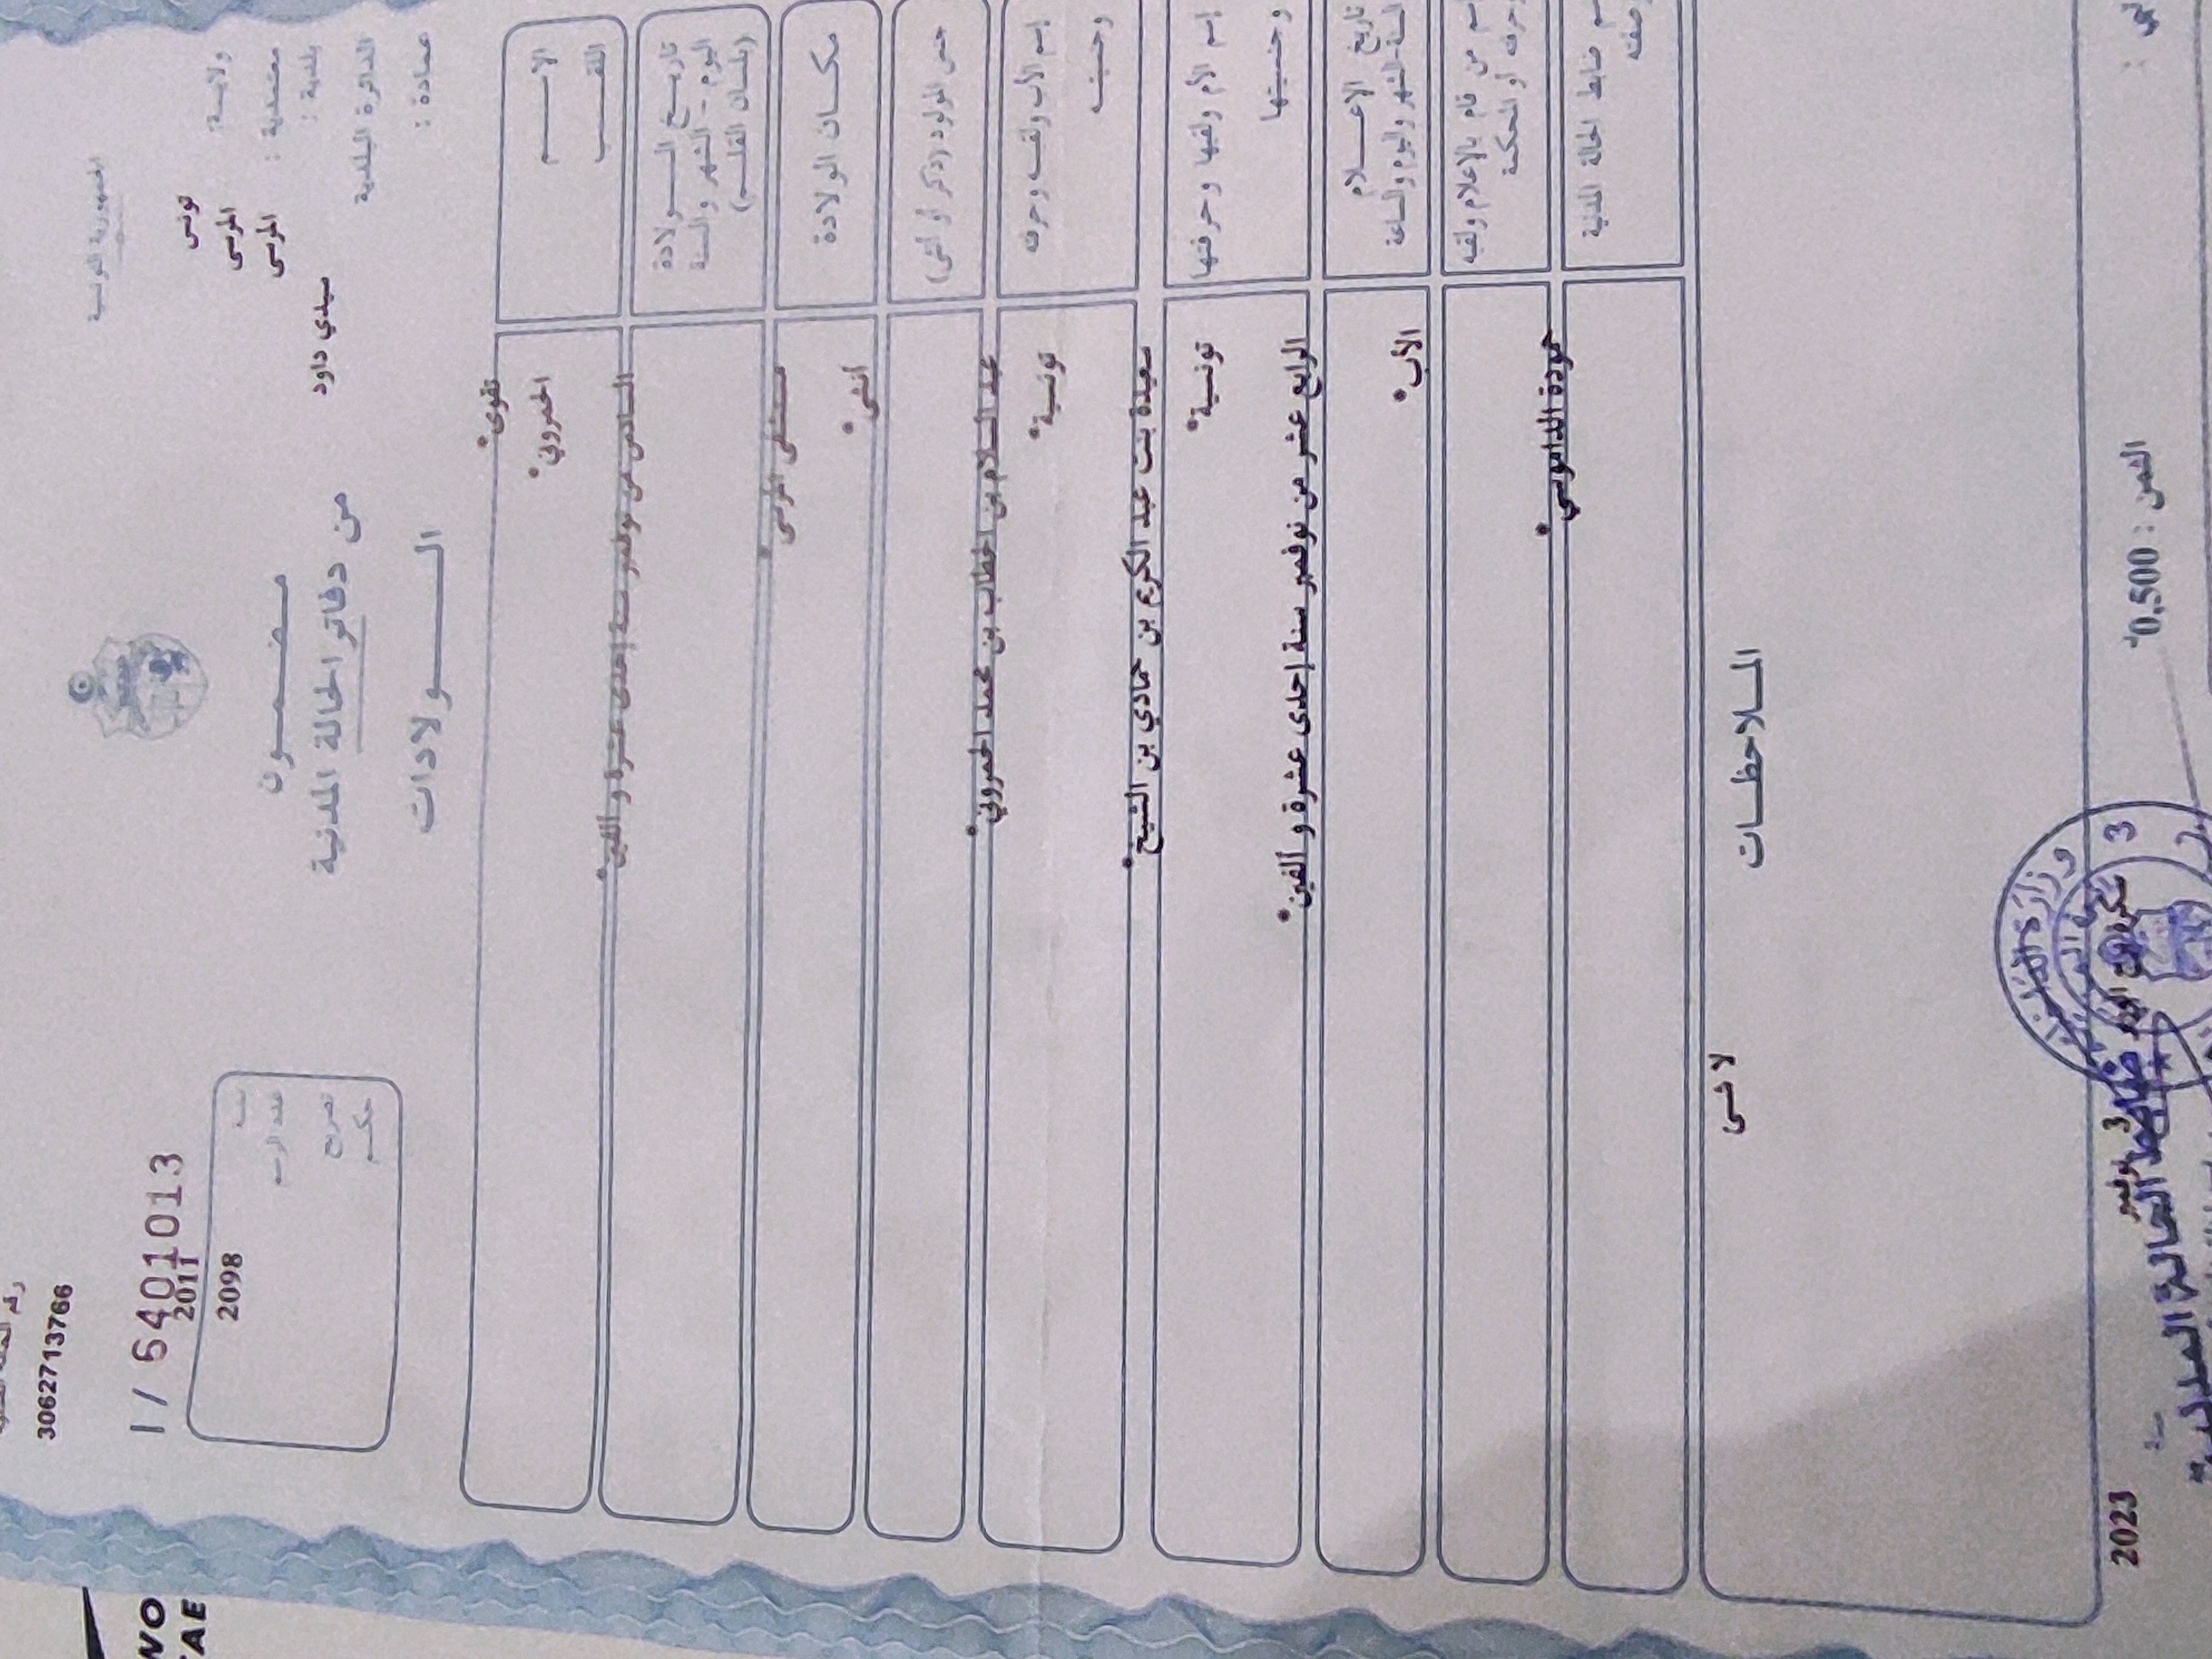 الجمهورية التونسية
30627137766
1/ 6401013
ولايـة: تونس
معتمدية : المرسى
بلدية : المرسى
الدائرة البلدية سيدي داود
عمادة :
مضمـــون
من دفاتر الحالة المدنية
الـــولادات
سنة 2011
عدد الرسم 2098
تصريح
حكم
الاســـم تقوى°
اللقـــب الحمروني°
تاريـــخ الـــولادة
اليوم - الشهر والسنة
(بلسان القلـــم)
السادس من نوفمبر سنة إحدى عشرة و ألفين°
مكــان الولادة مستشفى المرسى°
جنس المولود (ذكر أو أنثى) أنثى°
إسم الأب ولقبه وحرفته
محمد السلام بن الخطاب بن محمد الحمروني°
وجنسيته تونسية°
إسم الأم ولقبها وحرفتها
سعيدة بنت عبد الكريم بن حمادي بن الشيخ°
وجنسيتها تونسية°
تاريخ الإعـــلام
السنة والشهر واليوم والساعة
الرابع عشر من نوفمبر سنة إحدى عشرة و ألفين°
إسم من قام بالإعلام ولقبه
وحرفته أو المحكمة
الأب°
إسم ضابط الحالة المدنية
وصفته
حمودة الداموسي°
المـــلاحظـــات
لا شىء
الثمن : 0,500
3 نوفمبر 2023
وزارة الداخلية
ضابط الحالة المدنية
NO
TAE